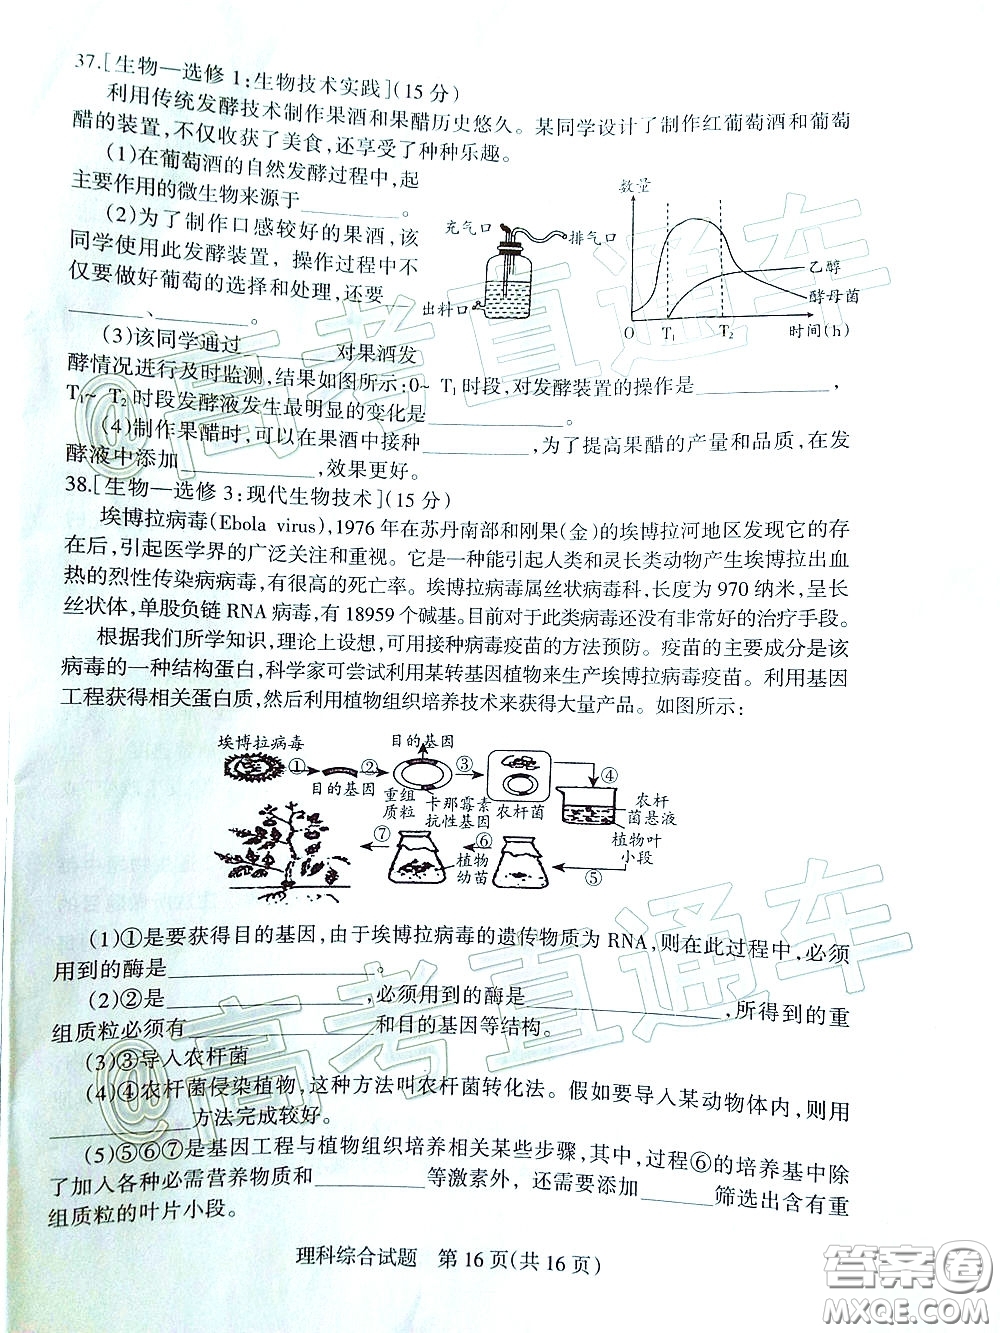 37.[生物—选修1:生物技术实践](15分)
利用传统发酵技术制作果酒和果醋历史悠久。某同学设计了制作红葡萄酒和葡萄
醋的装置,不仅收获了美食,还享受了种种乐趣。
(1)在葡萄酒的自然发酵过程中,起
主要作用的微生物来源于________。
(2)为了制作口感较好的果酒,该
同学使用此发酵装置,操作过程中不
仅要做好葡萄的选择和处理,还要
________、________。
(3)该同学通过________对果酒发
酵情况进行及时监测,结果如图所示:0~T₁时段,对发酵装置的操作是________,
T₁~T₂时段发酵液发生最明显的变化是________。
(4)制作果醋时,可以在果酒中接种________,为了提高果醋的产量和品质,在发
酵液中添加________,效果更好。
充气口
排气口
出料口
数量
乙醇
酵母菌
O T₁ T₂ 时间(h)
38.[生物—选修3:现代生物技术](15分)
埃博拉病毒(Ebola virus),1976年在苏丹南部和刚果(金)的埃博拉河地区发现它的存
在后,引起医学界的广泛关注和重视。它是一种能引起人类和灵长类动物产生埃博拉出血
热的烈性传染病病毒,有很高的死亡率。埃博拉病毒属丝状病毒科,长度为970纳米,呈长
丝状体,单股负链RNA病毒,有18959个碱基。目前对于此类病毒还没有非常好的治疗手段。
根据我们所学知识,理论上设想,可用接种病毒疫苗的方法预防。疫苗的主要成分是该
病毒的一种结构蛋白,科学家可尝试利用某转基因植物来生产埃博拉病毒疫苗。利用基因
工程获得相关蛋白质,然后利用植物组织培养技术来获得大量产品。如图所示:
埃博拉病毒
①
目的基因
②
目的基因
重组
质粒
卡那霉素
抗性基因
③
农杆菌
④
农杆
菌悬液
植物叶
小段
⑤
⑥
植物
幼苗
⑦
(1)①是要获得目的基因,由于埃博拉病毒的遗传物质为RNA,则在此过程中,必须
用到的酶是________。
(2)②是________,必须用到的酶是________,所得到的重
组质粒必须有________和目的基因等结构。
(3)③导入农杆菌
(4)④农杆菌侵染植物,这种方法叫农杆菌转化法。假如要导入某动物体内,则用
________方法完成较好。
(5)⑤⑥⑦是基因工程与植物组织培养相关某些步骤,其中,过程⑥的培养基中除
了加入各种必需营养物质和________等激素外,还需要添加________筛选出含有重
组质粒的叶片小段。
理科综合试题 第16页(共16页)
@高考直通车
@高考直通车
答案圈
MXQE.COM